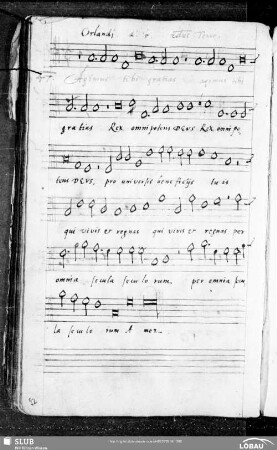 Orlandi
Agimus tibi gratias
gratias Rex omnipotens DEUS Rex omnipo
tens DEUS, pro universis beneficijs tuis
qui vivis et regnas qui vivis et regnas per
omnia secula seculorum, per omnia secu
la seculorum Amen
SLUB
LOBAU